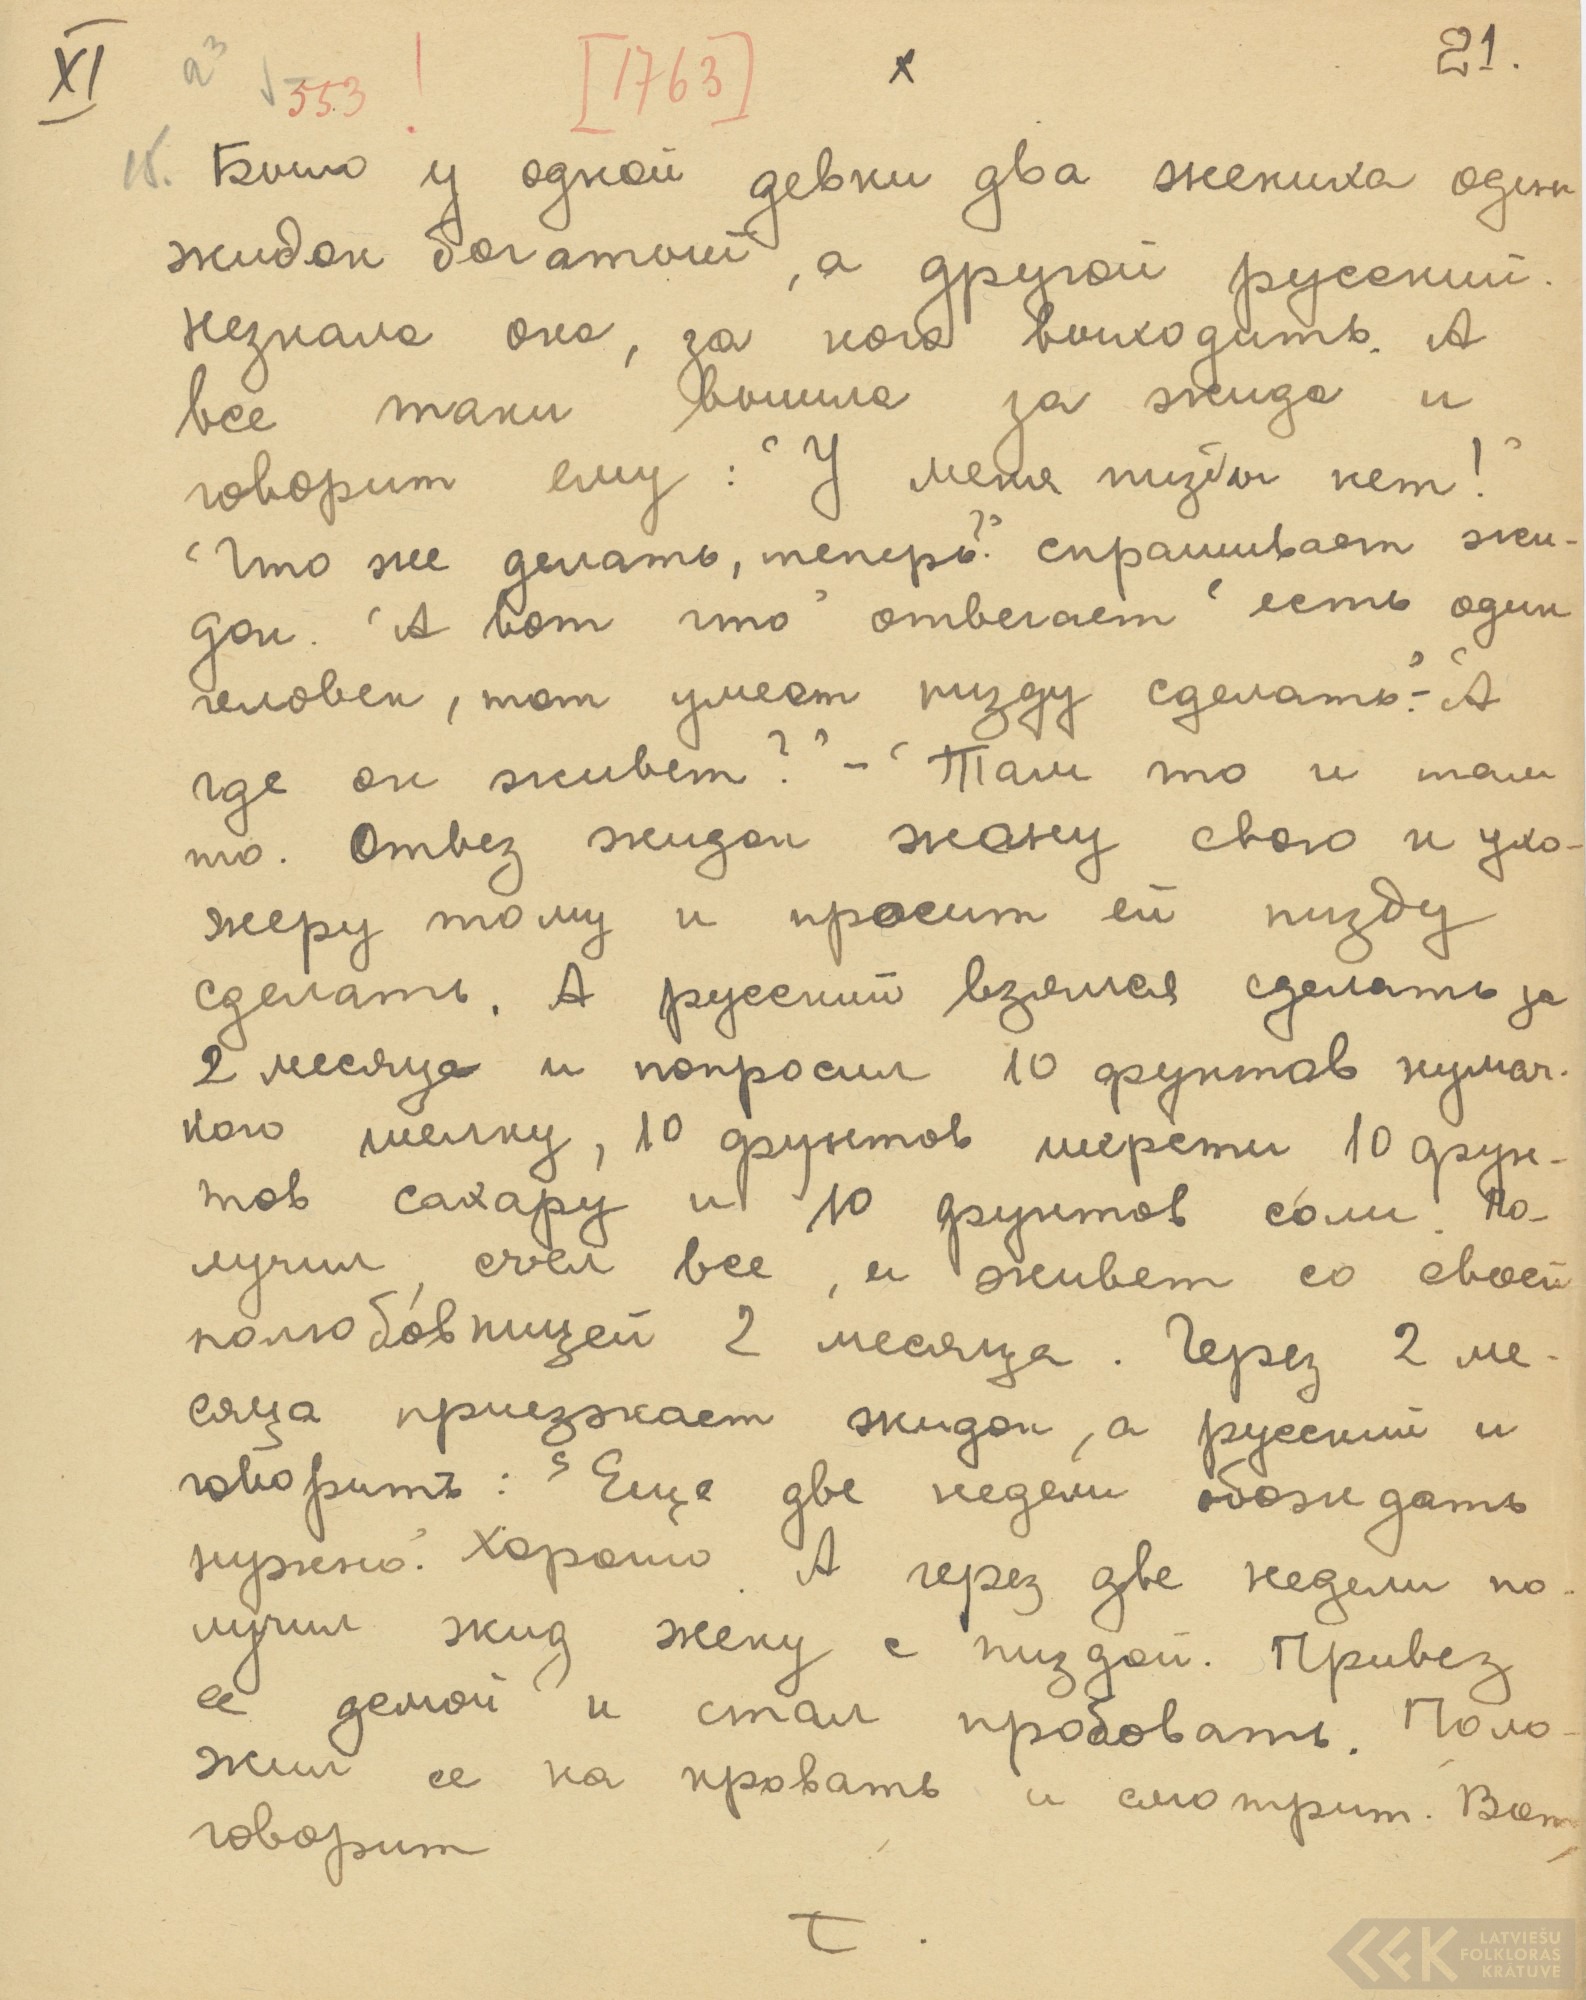 XI a³ 553 ! [1763] x 21.
15. Было у одной девки два жениха один
жидок богатый, а другой русский.
Незнала она, за кого выходить. А
все таки вышла за жида и
говорит ему: "У меня пизды нет!"
"Что же делать, теперь?" спрашивает жи-
док. "А вот что" отвечает "есть один
человек, тот умеет пизду сделать." - "А
где он живет?" - "Там то и там
то. Отвез жидок жану свою и ухо-
жеру тому и просит ей пизду
сделать. А русский взялся сделать за
2 месяца и попросил 10 фунтов кумач-
ного шелку, 10 фунтов шерсти 10 фун-
тов сахару и 10 фунтов соли. По-
лучил, счел все, и живет со своей
полюбо́вницей 2 месяца. Через 2 ме-
сяца приезжает жидок, а русский и
говоритъ: "Еще две недели обождать
нужно." Хорошо. А через две недели по-
лучил жид жену с пиздой. Привез
ее домой и стал пробовать. Поло-
жил ее на кровать и смотрит. Вот,
говорит
LATVIEŠU
FOLKLORAS
KRĀTUVE